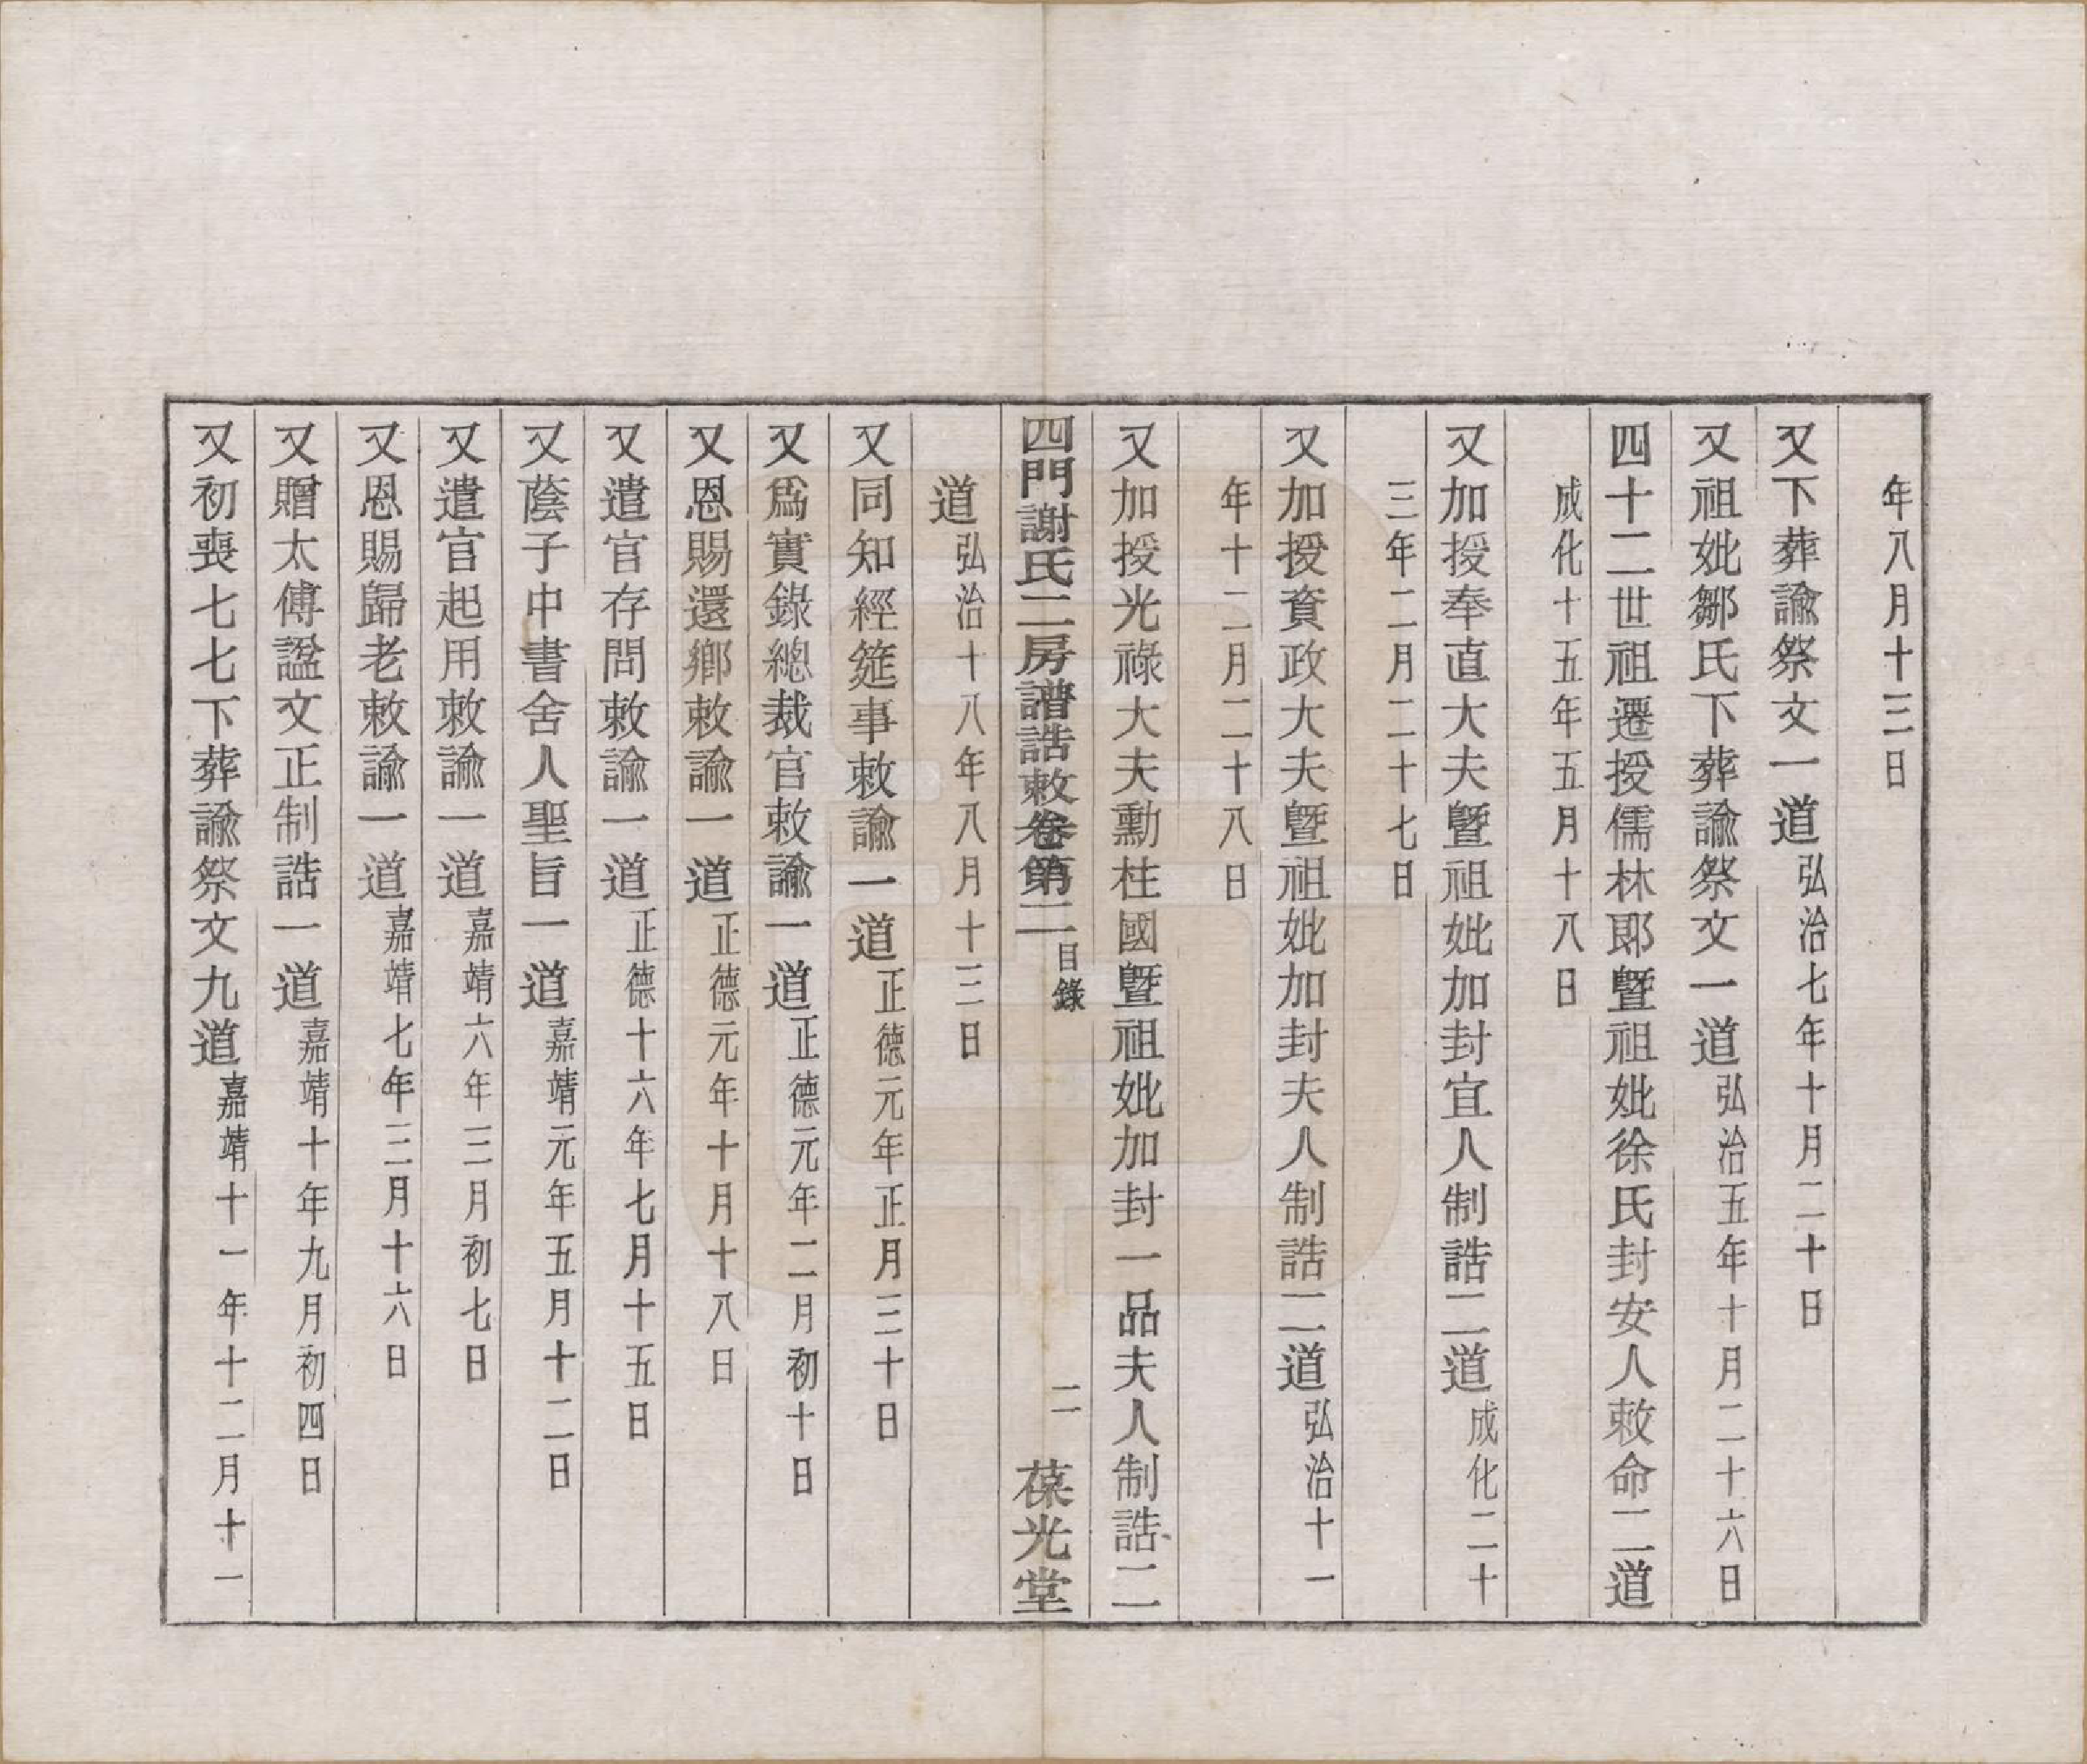 年八月十三日
又下葬諭祭文一道弘治七年十月二十日
又祖妣鄒氏下葬諭祭文一道弘治五年十月二十六日
四十二世祖遷授儒林郞曁祖妣徐氏封安人敕命二道
成化十五年五月十八日
又加授奉直大夫曁祖妣加封宜人制誥二道成化二十
三年二月二十七日
又加授資政大夫曁祖妣加封夫人制誥二道弘治十一
年十二月二十八日
又加授光祿大夫勳柱國曁祖妣加封一品夫人制誥二
四門謝氏二房譜誥敕卷第二目錄 二 葆光堂
道弘治十八年八月十三日
又同知經筵事敕諭一道正德元年正月三十日
又爲實錄總裁官敕諭一道正德元年二月初十日
又恩賜還鄕敕諭一道正德元年十月十八日
又遣官存問敕諭一道正德十六年七月十五日
又蔭子中書舍人聖旨一道嘉靖元年五月十二日
又遣官起用敕諭一道嘉靖六年三月初七日
又恩賜歸老敕諭一道嘉靖七年三月十六日
又贈太傅諡文正制誥一道嘉靖十年九月初四日
又初喪七七下葬諭祭文九道嘉靖十一年十二月十一